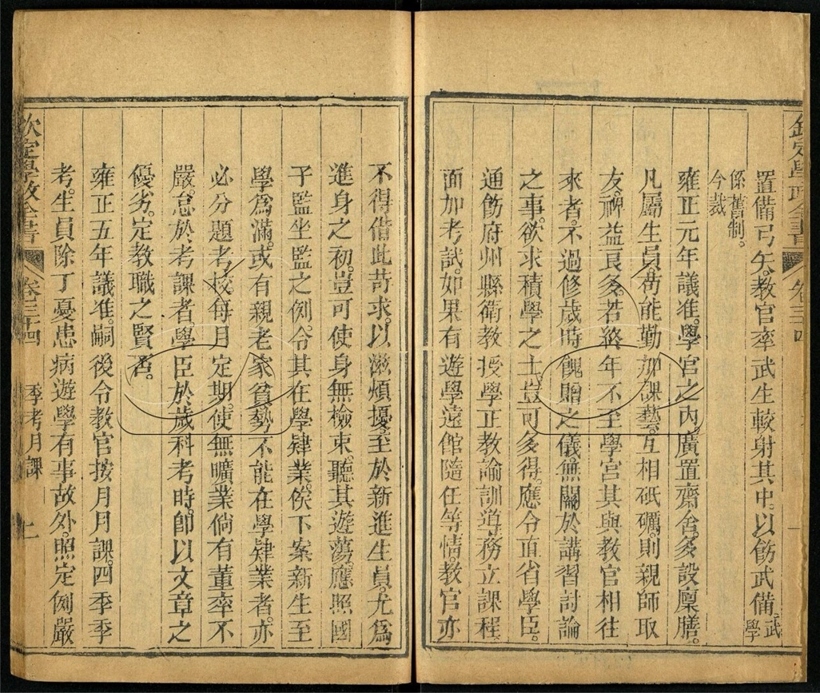 欽定學政全書 卷三十四
置備弓矢。教官率武生較射其中。以飭武備。武學
係舊制。
今裁
雍正元年議准。學官之內。廣置齋舍。多設廩膳。
凡屬生員。尚能勤加課藝。互相砥礪。則親師取
友。裨益良多。若終年不至學宮。其與教官相往
來者。不過修歲時餽贈之儀。無關於講習討論
之事。欲求積學之士。豈可多得。應令直省學臣。
通飭府州縣衛教授學正教諭訓導。務立課程。
面加考試。如果有遊學遠館隨任等情。教官亦
不得借此苛求。以滋煩擾。至於新進生員。尤爲
進身之初。豈可使身無檢束。聽其遊蕩。應照國
子監坐監之例。令其在學肄業。俟下案新生至
學爲滿。或有親老家貧勢不能在學肄業者。亦
必分題考校。每月定期。使無曠業。倘有董率不
嚴。怠於考課者。學臣於歲科考時。即以文章之
優劣。定教職之賢否。
雍正五年議准。嗣後令教官按月月課。四季季
考。生員除丁憂患病遊學有事故外。照定例嚴
欽定學政全書 卷三十四 季考月課 二